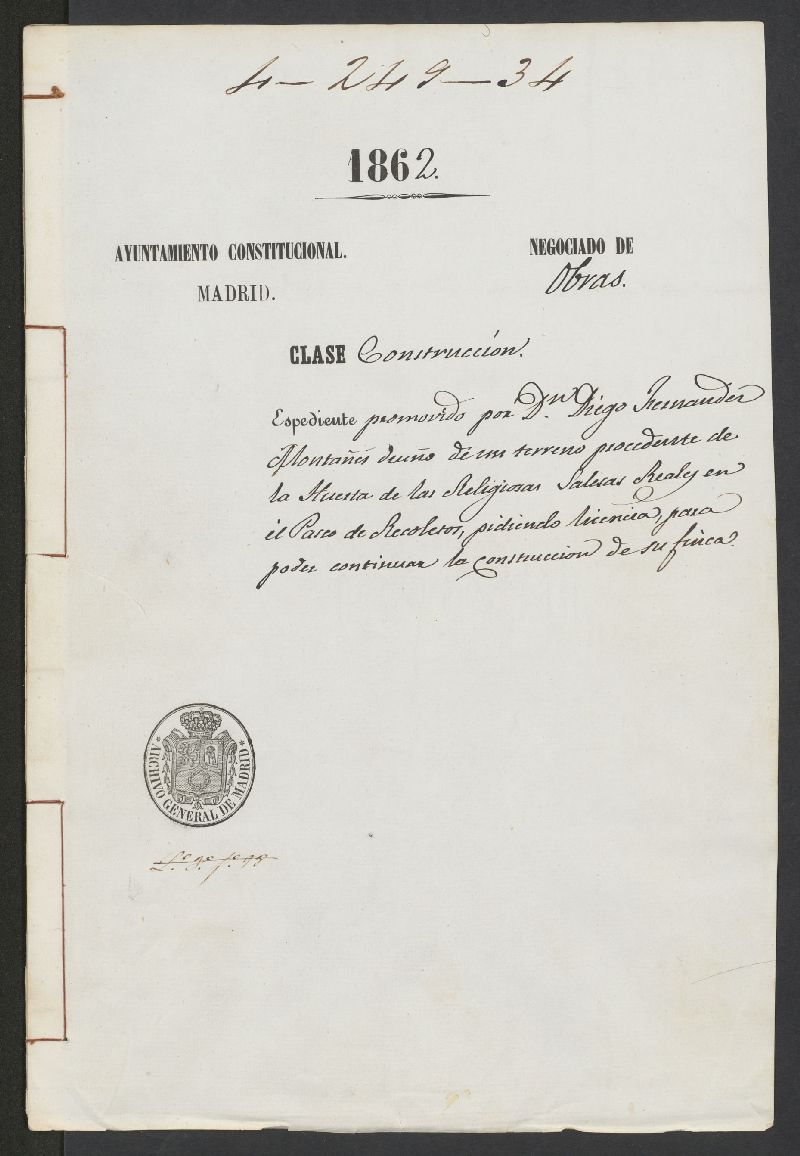 4-249-34
1862.
AYUNTAMIENTO CONSTITUCIONAL.
MADRID.
NEGOCIADO DE
Obras.
CLASE Construcción.
Espediente promovido por Dn. Diego Fernandez
Montañés dueño de un terreno procedente de
la Huerta de las Religiosas Salesas Reales en
el Paseo de Recoletos, pidiendo licencia, para
poder continuar la construccion de su finca.
ARCHIVO GENERAL DE MADRID